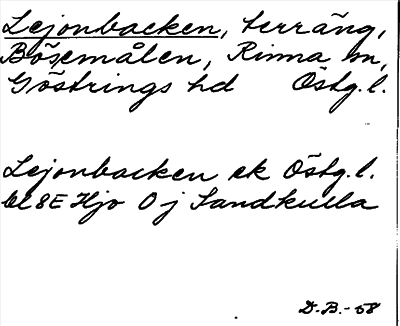 Lejonbacken, terräng,
Bösemålen, Rinna sn,
Göstrings hd Östg.l.
Lejonbacken ek Östg.l.
bl 8E Hjo 0 j Sandkulla
D.B.-58